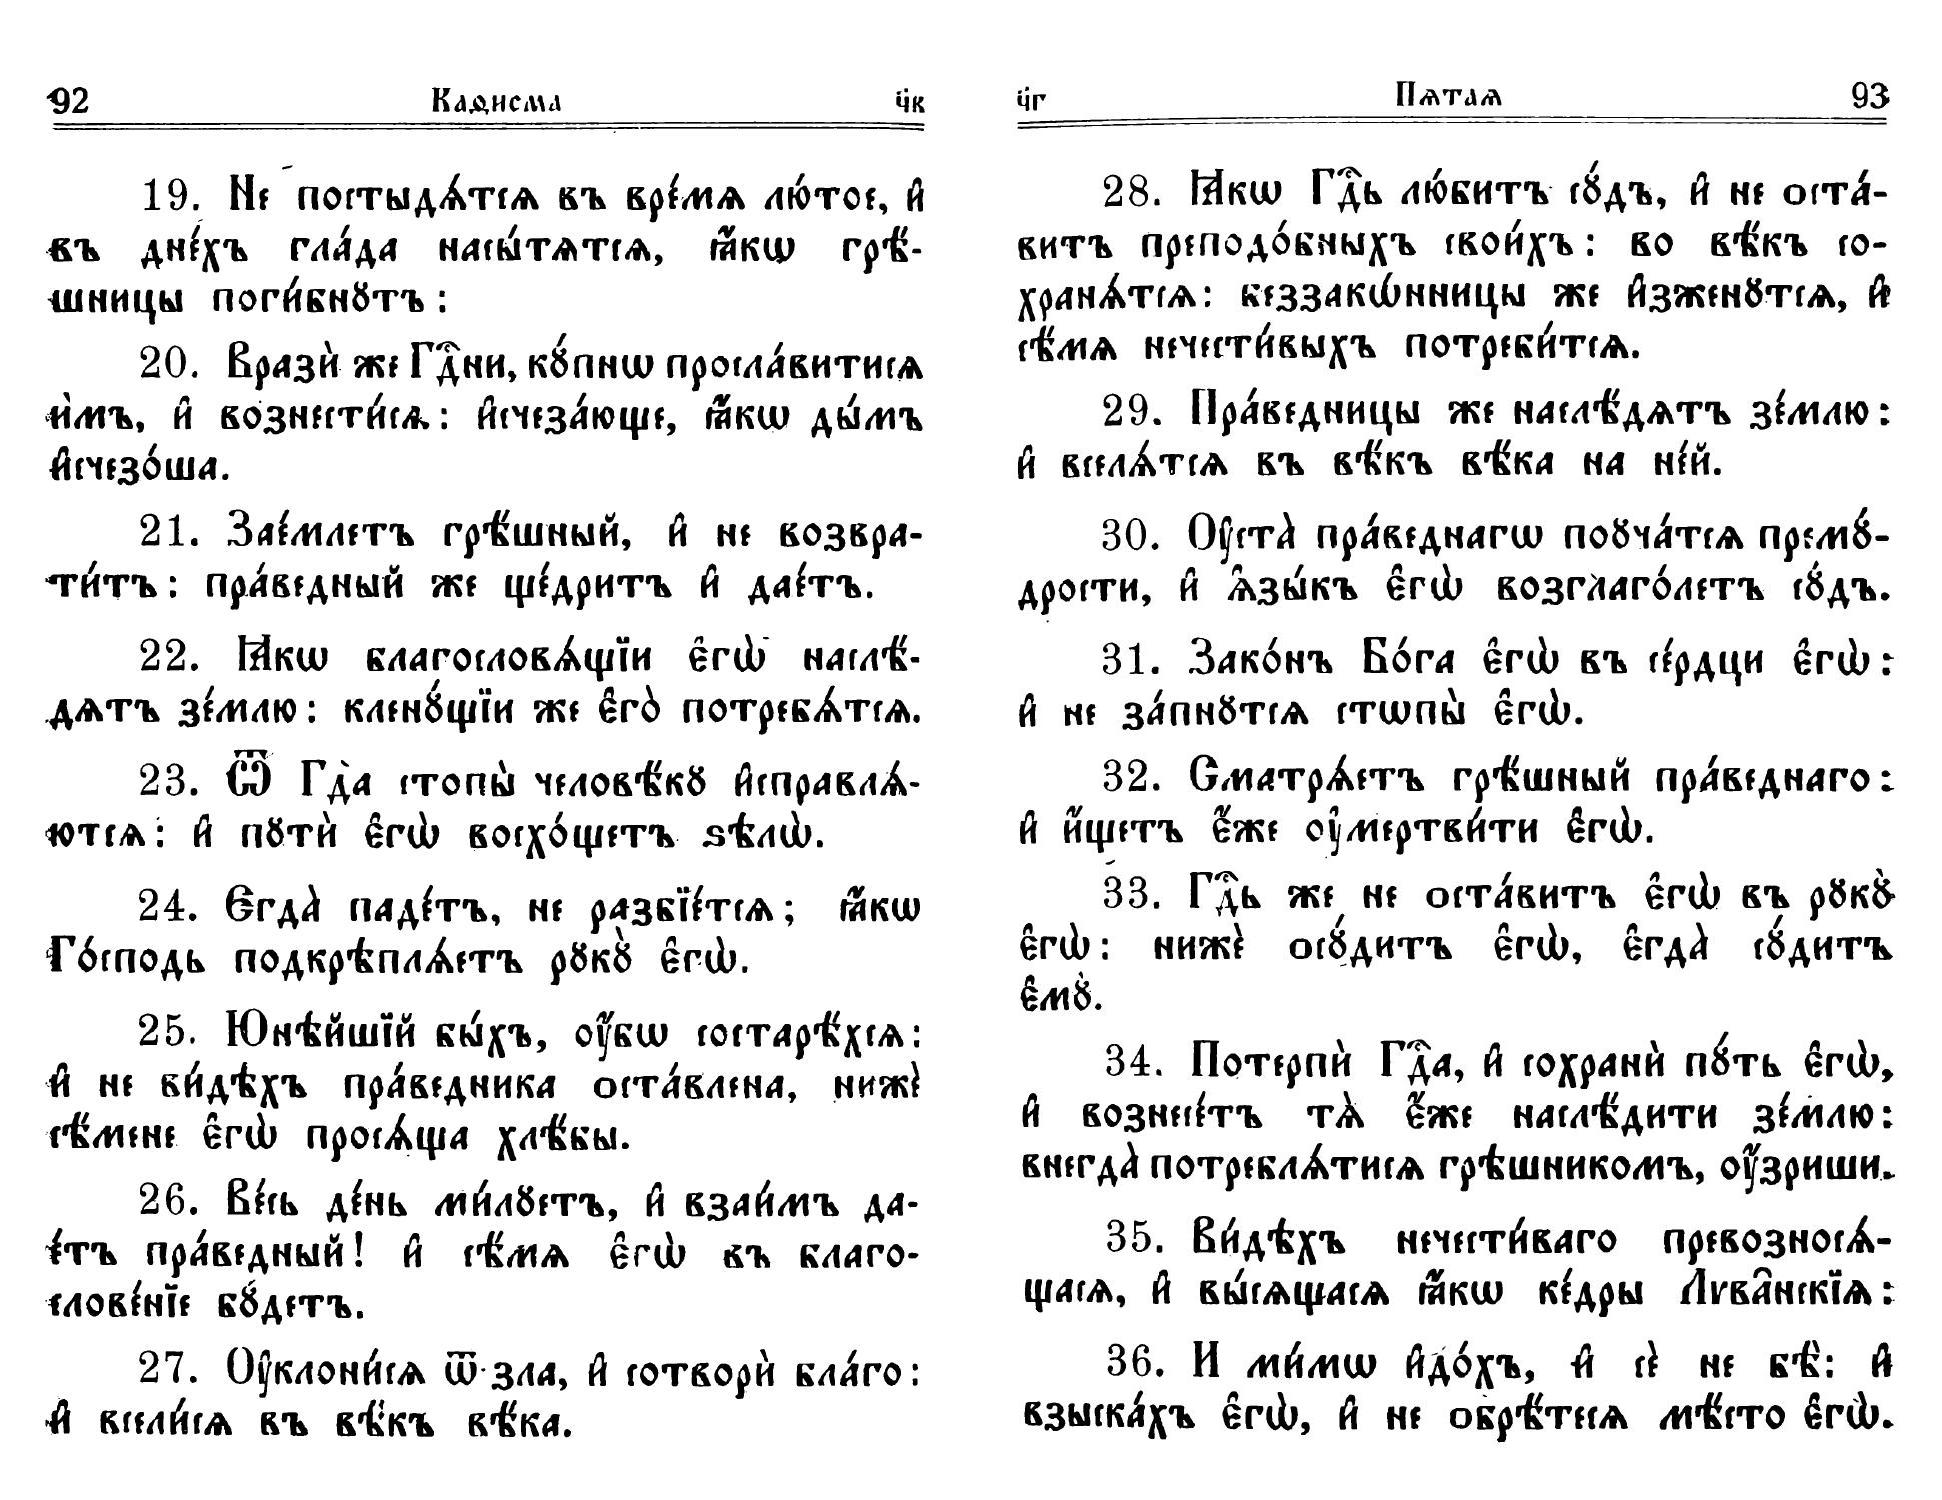 92 Каѳисма ч҃к
19. Не постыдѧ́тсѧ въ вре́мѧ лю́тое, и҆
въ дне́хъ гла́да насы́тѧтсѧ, ꙗ҆́кѡ грѣ́-
шницы поги́бнꙋтъ:
20. Вразѝ же Гдⷭ҇ни, кꙋ́пнѡ просла́витисѧ
и҆̀мъ, и҆ вознести́сѧ: и҆счеза́юще, ꙗ҆́кѡ ды́мъ
и҆счезо́ша.
21. Зае́млетъ грѣ́шный, и҆ не возвра-
ти́тъ: пра́ведный же ще́дритъ и҆ дае́тъ.
22. Ꙗ҆́кѡ благословѧ́щїи є҆гѡ̀ наслѣ́-
дѧтъ зе́млю: кленꙋ́щїи же є҆го̀ потребѧ́тсѧ.
23. Ѿ Гдⷭ҇а стопы̀ человѣ́кꙋ и҆справлѧ́-
ютсѧ: и҆ пꙋтѝ є҆гѡ̀ восхо́щетъ ѕѣлѡ̀.
24. Є҆гда̀ паде́тъ, не разбїе́тсѧ; ꙗ҆́кѡ
Го́сподь подкрѣплѧ́етъ рꙋкꙋ̀ є҆гѡ̀.
25. Юнѣ́йшїй бы́хъ, ᲂу҆́бѡ состарѣ́хсѧ:
и҆ не ви́дѣхъ пра́ведника оста́влена, нижѐ
сѣ́мене є҆гѡ̀ просѧ́ща хлѣ́бы.
26. Ве́сь де́нь ми́лꙋетъ, и҆ взаи́мъ да-
е́тъ пра́ведный! и҆ сѣ́мѧ є҆гѡ̀ въ благо-
слове́нїе бꙋ́детъ.
27. Оу҆клони́сѧ ѿ зла, и҆ сотворѝ бла́го:
и҆ всели́сѧ въ вѣ́къ вѣ́ка.
ч҃г Пѧтаѧ 93
28. Ꙗ҆́кѡ Гдⷭ҇ь лю́битъ сꙋ́дъ, и҆ не оста́-
витъ преподо́бныхъ свои́хъ: во вѣ́къ со-
хранѧ́тсѧ: беззакѡ́нницы же и҆зженꙋ́тсѧ, и҆
сѣ́мѧ нечести́выхъ потреби́тсѧ.
29. Пра́ведницы же наслѣ́дѧтъ зе́млю:
и҆ вселѧ́тсѧ въ вѣ́къ вѣ́ка на не́й.
30. Оу҆ста̀ пра́веднагѡ поꙋча́тсѧ премꙋ́-
дрости, и҆ ѧ҆зы́къ є҆гѡ̀ возглаго́летъ сꙋ́дъ.
31. Зако́нъ Бо́га є҆гѡ̀ въ се́рдци є҆гѡ̀:
и҆ не за́пнꙋтсѧ стѡпы̀ є҆гѡ̀.
32. Сматрѧ́етъ грѣ́шный пра́веднаго:
и҆ и҆́щетъ є҆́же ᲂу҆мертви́ти є҆гѡ̀.
33. Гдⷭ҇ь же не оста́витъ є҆гѡ̀ въ рꙋкꙋ̀
є҆гѡ̀: нижѐ осꙋ́дитъ є҆гѡ̀, є҆гда̀ сꙋ́дитъ
є҆мꙋ̀.
34. Потерпѝ Гдⷭ҇а, и҆ сохранѝ пꙋ́ть є҆гѡ̀,
и҆ вознесе́тъ тѧ̀ є҆́же наслѣ́дити зе́млю:
внегда̀ потреблѧ́тисѧ грѣ́шникомъ, ᲂу҆́зриши.
35. Ви́дѣхъ нечести́ваго превозносѧ́-
щасѧ, и҆ вы́сѧщасѧ ꙗ҆́кѡ ке́дры Лѵва̑нскїѧ:
36. И ми́мѡ и҆до́хъ, и҆ сѐ не бѣ̀: и҆
взыска́хъ є҆гѡ̀, и҆ не обрѣ́тесѧ мѣ́сто є҆гѡ̀.